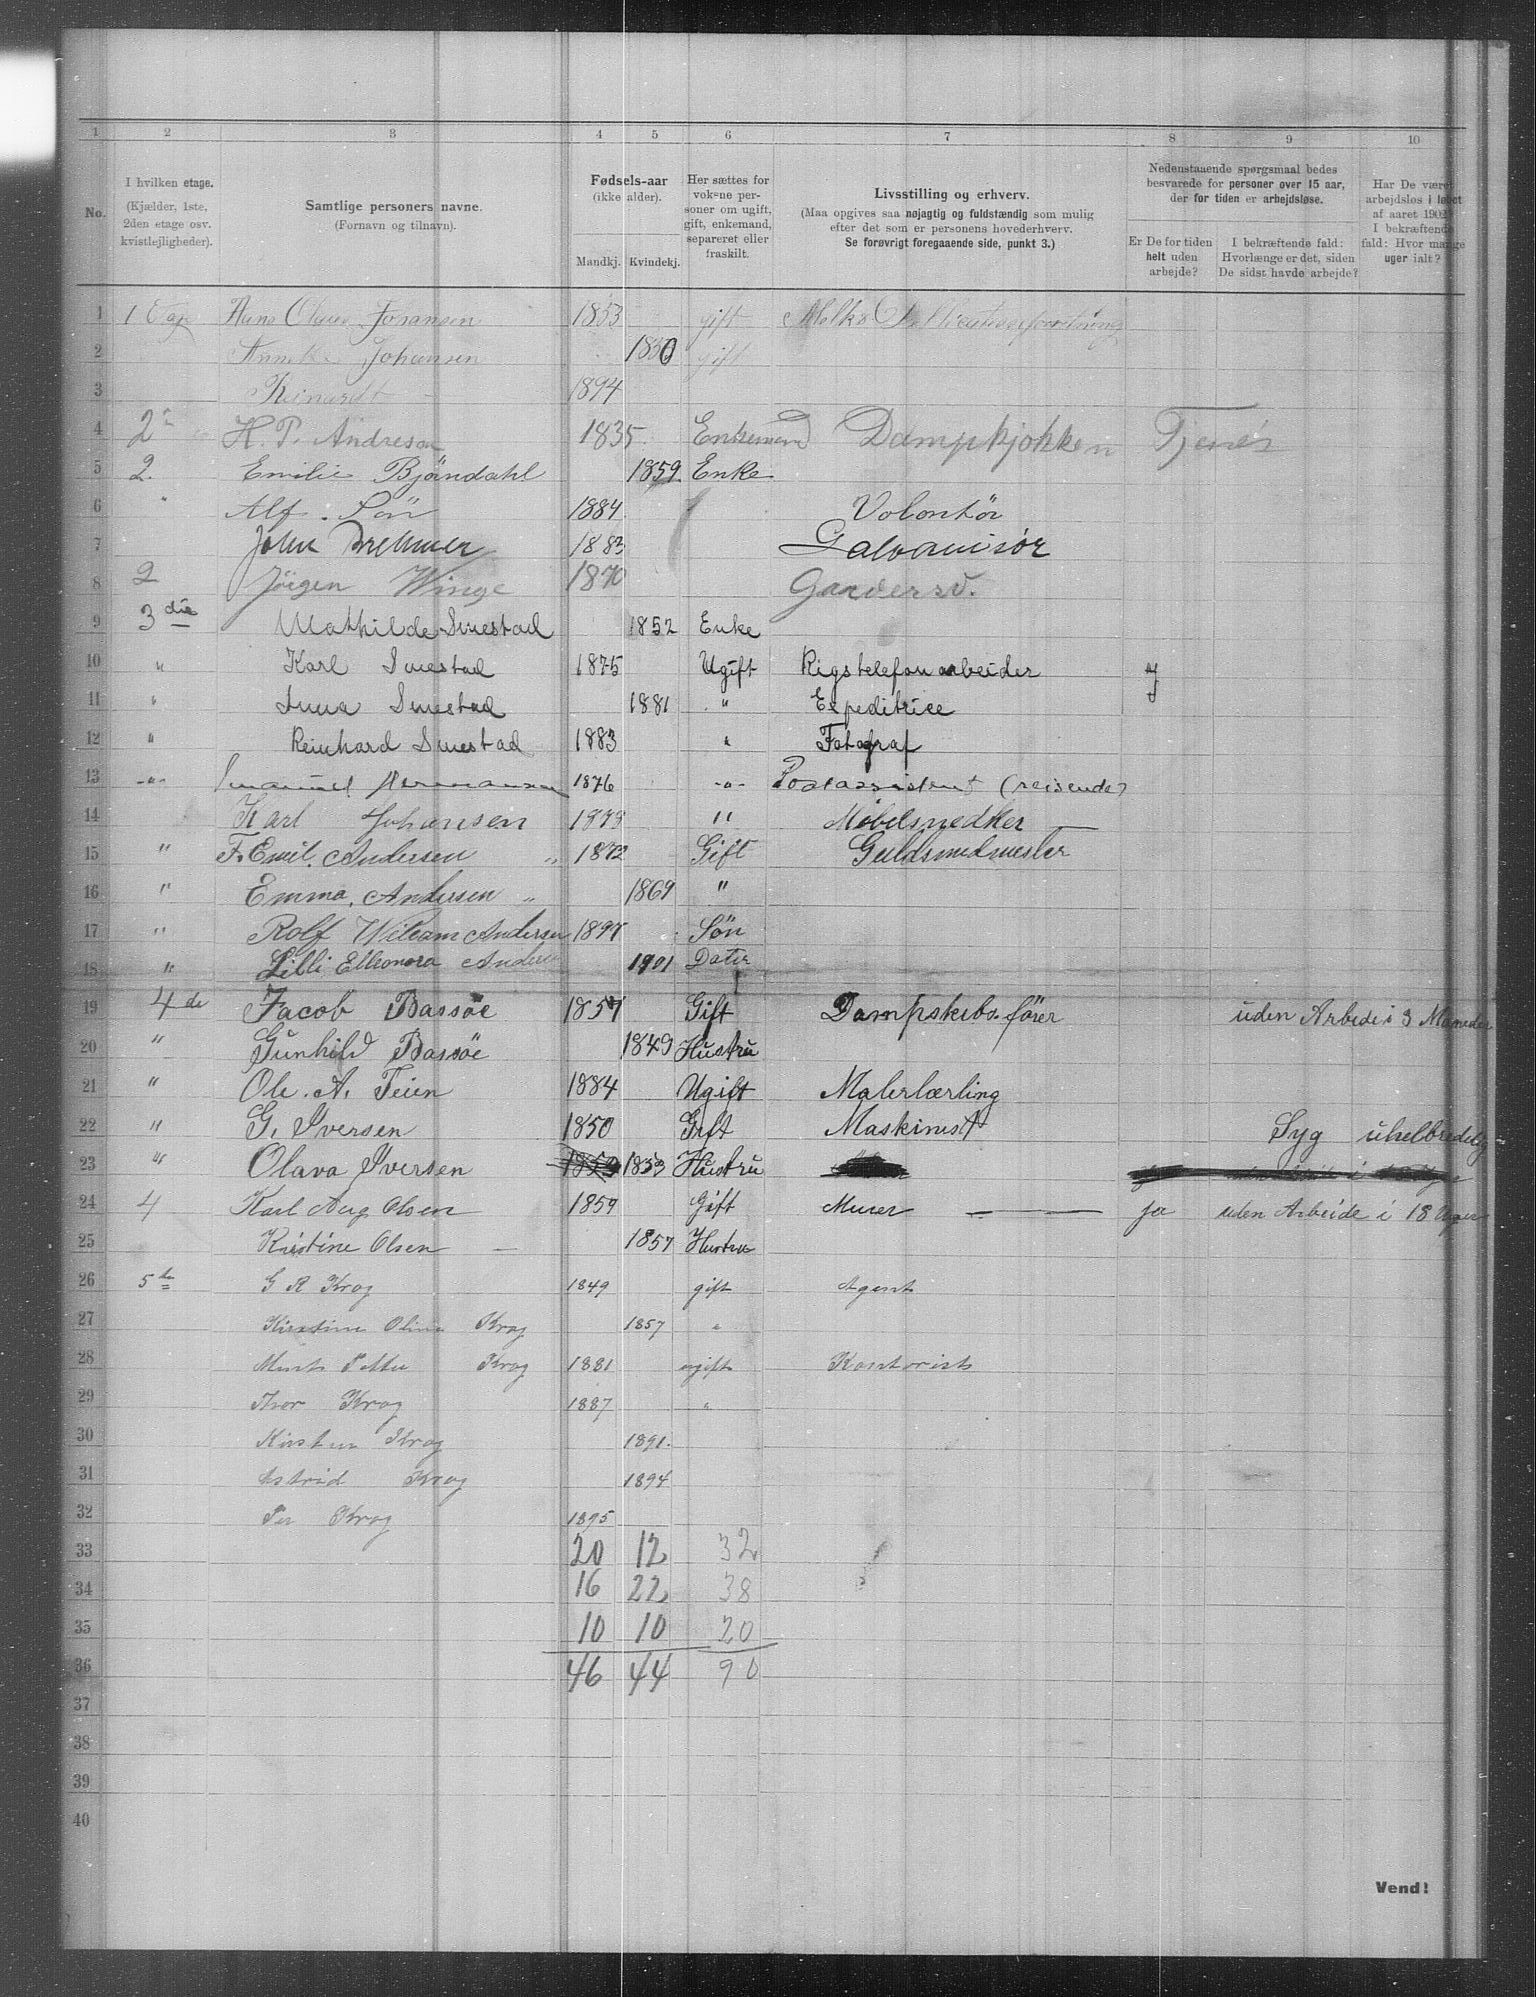 1 2 3 4 5 6 7 8 9 10
No.
I hvilken etage.
(Kjælder, 1ste,
2den etage osv.
kvistlejligheder).
Samtlige personers navne.
(Fornavn og tilnavn).
Fødsels-aar
(ikke alder).
Mandkj. Kvindekj.
Her sættes for
voksne per-
soner om ugift,
gift, enkemand,
separeret eller
fraskilt.
Livsstilling og erhverv.
(Maa opgives saa nøjagtig og fuldstændig som mulig
efter det som er personens hovederhverv.
Se forøvrigt foregaaende side, punkt 3.)
Nedenstaaende spørgsmaal bedes
besvarede for personer over 15 aar,
der for tiden er arbejdsløse.
Er De for tiden
helt uden
arbejde?
I bekræftende fald:
Hvorlænge er det, siden
De sidst havde arbejde?
Har De været
arbejdsløs i løbet
af aaret 1902
I bekræftende
fald: Hvor mange
uger ialt?
1 1 Etag Hans Olaus Johansen 1853 gift Melke
2 Johansen 1850 gift
3 Reinardt 1894
4 2 H. P. Andresen 1835 Enkemand Dampkjøkken Tjener
5 2. Emilie Bjöndahl 1859 Enke
6 " Alf. Sön 1884 Volontör
7 John Brehmer 1883 Galvanisör
8 2 Jörgen Winge 1870
9 3die Mathilde Smestad 1852 Enke
10 " Karl Smestad 1875 Ugift Rigstelefonarbeider
11 " Anna Smestad 1881 " Expeditrice
12 " Reinhard Smestad 1883 " Fotograf
13 -"- Emanuel Hermansen 1876 -"- Postassistent (reisende)
14 Karl Johansen 1879 " Møbelsnedker
15 " F. Emil. Andersen " 1872 Gift Guldsmedmester
16 " Emma. Andersen " 1869 "
17 " Rolf William Andersen 1897 Søn
18 " Lilli Elleonora Andersen 1901 Dater
19 4de Jacob Bassöe 1857 Gift Dampskibsförer uden Arbeide i 3 Maneder
20 " Gunhild Bassöe 1849 Hustru
21 " Ole. A. Teien 1884 Ugift Malerlærling
22 " G. Iversen 1850 Gift Maskinist Syg uhelbredelig
23 " Olava Iversen 1853 Hustru
24 4 Karl Aug Olsen 1859 Gift Murer Ja uden Arbeide i 18 Uger
25 Kristine Olsen 1857 Hustru
26 5te G R Krog 1849 gift Agent
27 Kirstine Oline Krog 1857 "
28 Krog 1881 ugift Kontorist
29 Thor Krog 1887 "
30 Kirsten Krog 1891.
31 Astrid Krog 1894
32 Per Krog 1895
33 20 12 32
34 16 22 38
35 10 10 20
36 46 44 90
37
38
39
40
Vend!